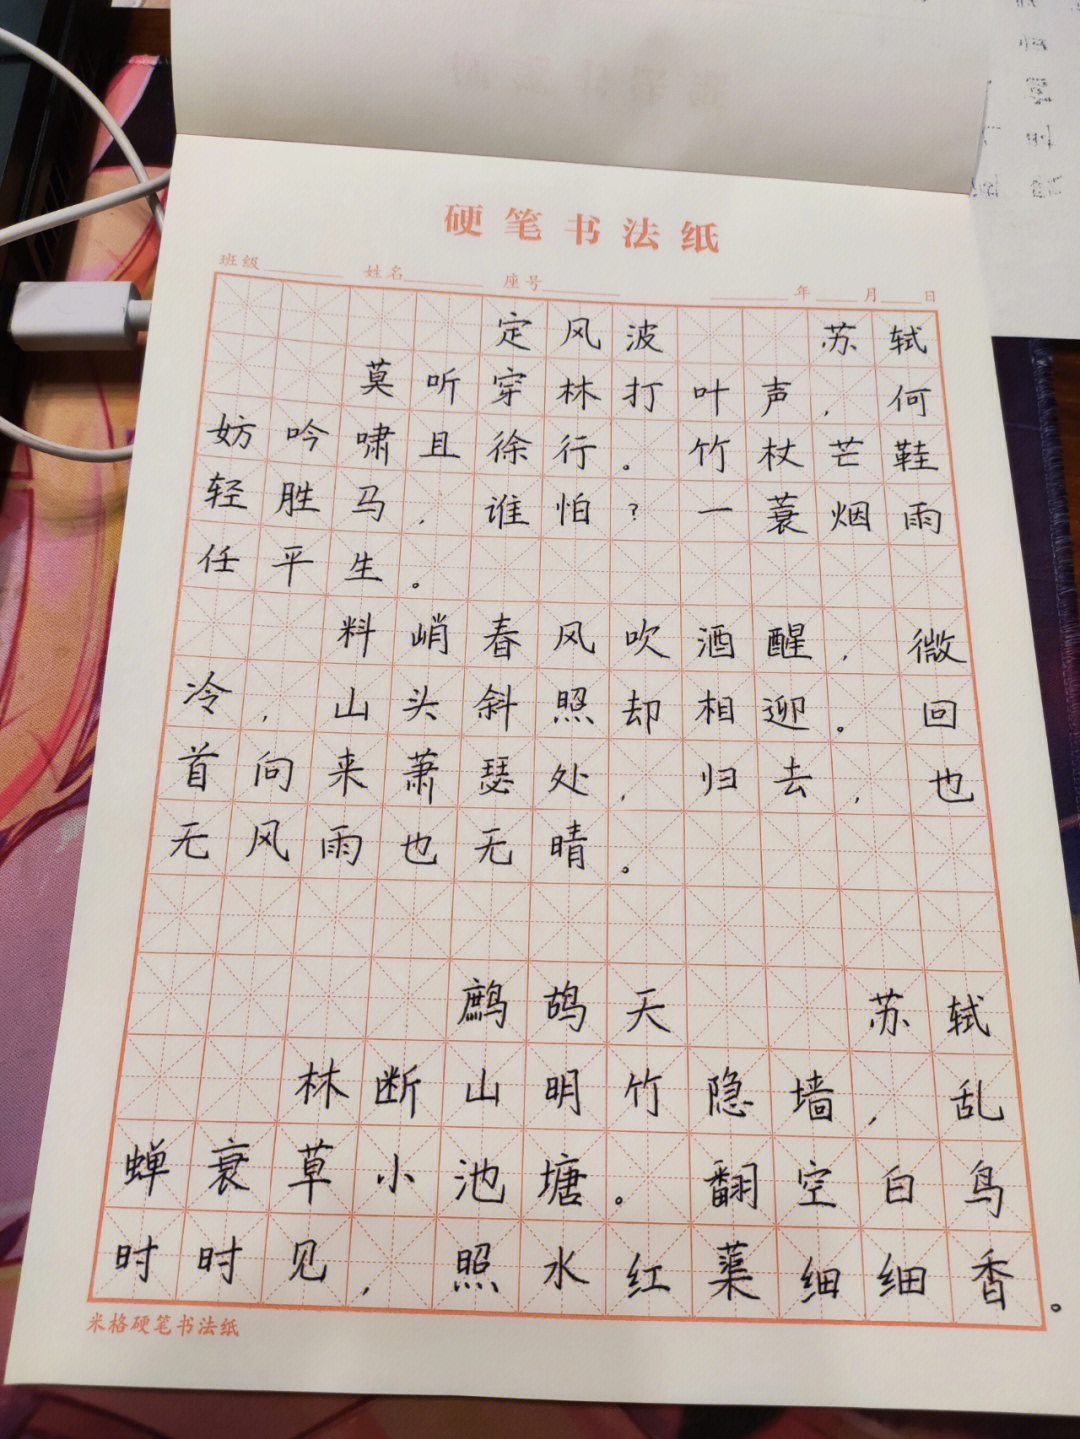 硬笔书法纸
班级 姓名 座号 年 月 日
定风波 苏轼
莫听穿林打叶声，何
妨吟啸且徐行。竹杖芒鞋
轻胜马，谁怕？一蓑烟雨
任平生。
料峭春风吹酒醒，微
冷，山头斜照却相迎。回
首向来萧瑟处，归去，也
无风雨也无晴。
鹧鸪天 苏轼
林断山明竹隐墙，乱
蝉衰草小池塘。翻空白鸟
时时见，照水红蕖细细香。
米格硬笔书法纸